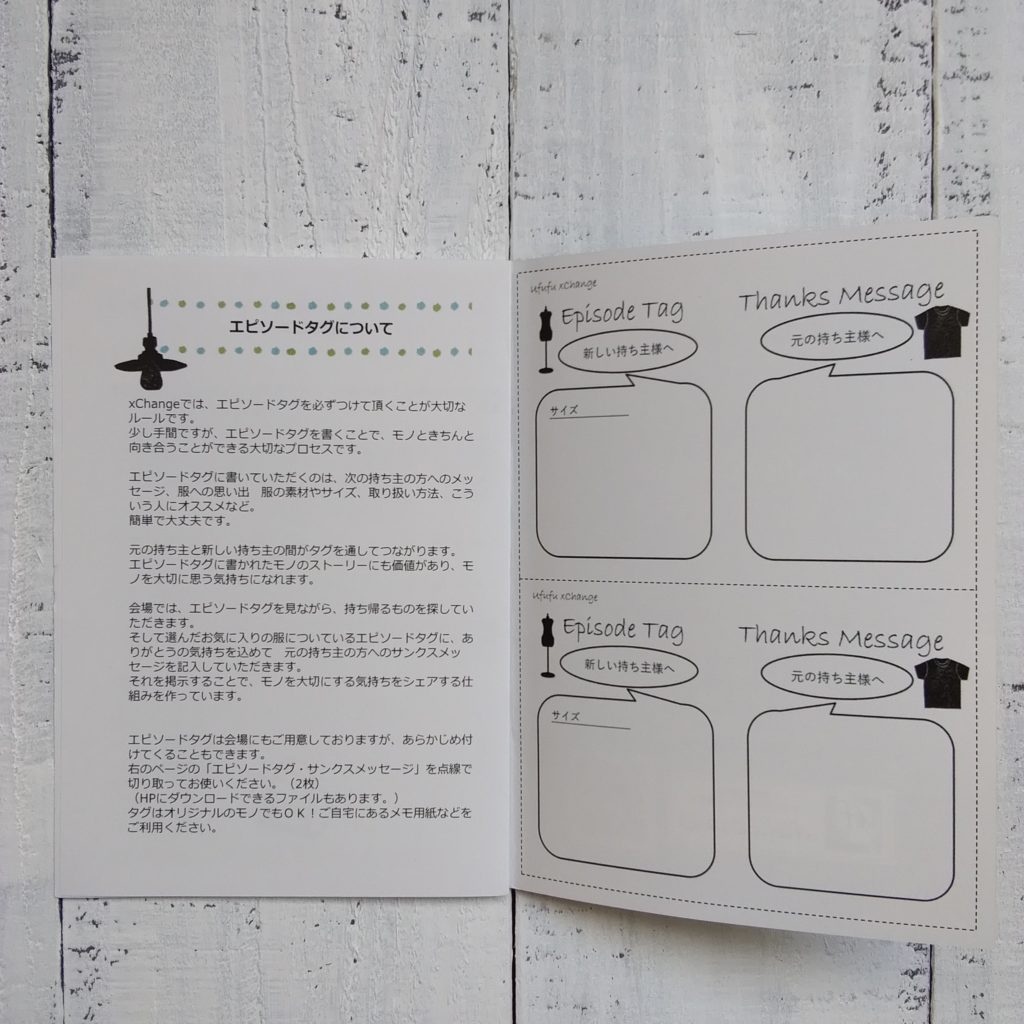 エピソードタグについて
xChangeでは、エピソードタグを必ずつけて頂くことが大切な
ルールです。
少し手間ですが、エピソードタグを書くことで、モノときちんと
向き合うことができる大切なプロセスです。
エピソードタグに書いていただくのは、次の持ち主の方へのメッ
セージ、服への思い出　服の素材やサイズ、取り扱い方法、こう
いう人にオススメなど。
簡単で大丈夫です。
元の持ち主と新しい持ち主の間がタグを通してつながります。
エピソードタグに書かれたモノのストーリーにも価値があり、モ
ノを大切に思う気持ちになれます。
会場では、エピソードタグを見ながら、持ち帰るものを探してい
ただきます。
そして選んだお気に入りの服についているエピソードタグに、あ
りがとうの気持ちを込めて　元の持ち主の方へのサンクスメッ
セージを記入していただきます。
それを掲示することで、モノを大切にする気持ちをシェアする仕
組みを作っています。
エピソードタグは会場にもご用意しておりますが、あらかじめ付
けてくることもできます。
右のページの「エピソードタグ・サンクスメッセージ」を点線で
切り取ってお使いください。（2枚）
（HPにダウンロードできるファイルもあります。）
タグはオリジナルのモノでもＯＫ！ご自宅にあるメモ用紙などを
ご利用ください。
Ufufu xChange
Episode Tag
新しい持ち主様へ
サイズ
Thanks Message
元の持ち主様へ
Ufufu xChange
Episode Tag
新しい持ち主様へ
サイズ
Thanks Message
元の持ち主様へ